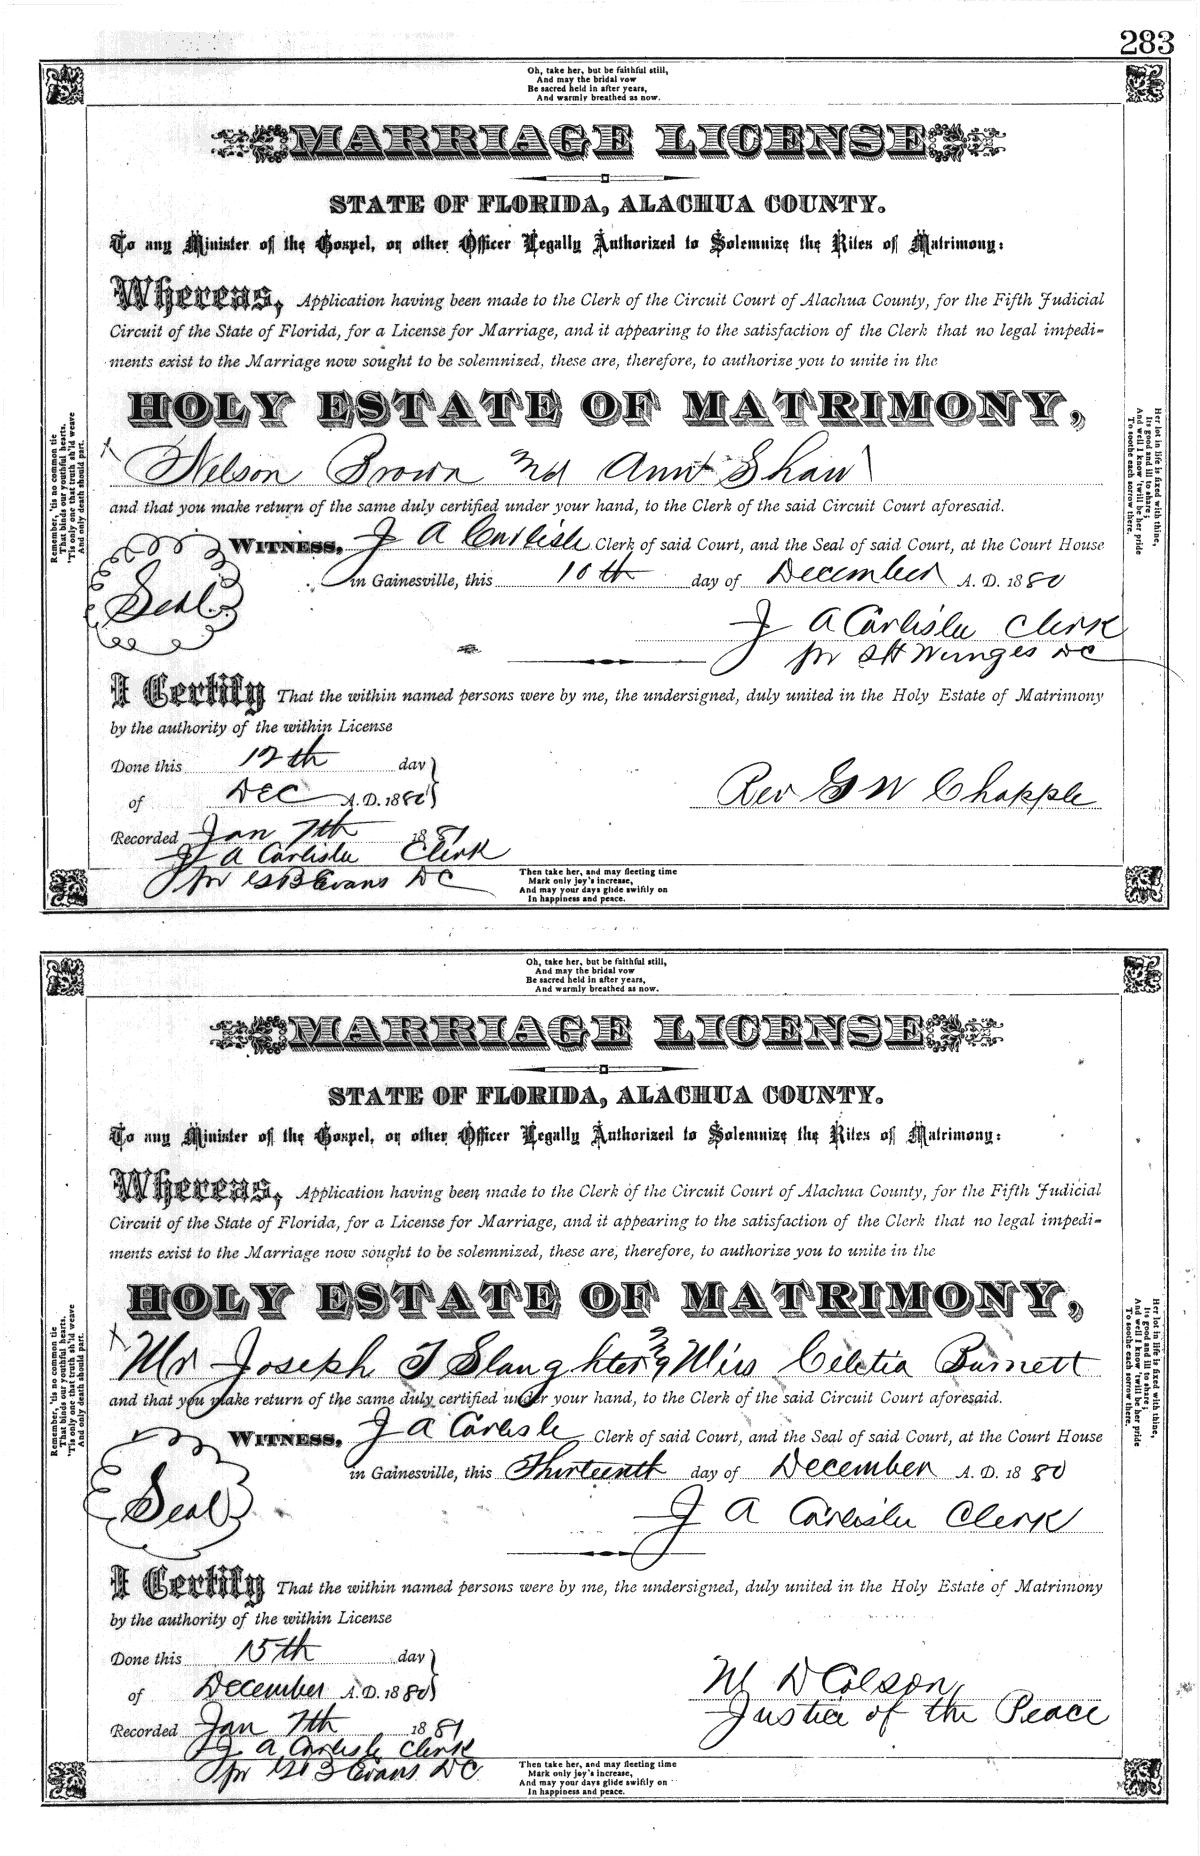 283
Oh, take her, but be faithful still,
And may the bridal vow
Be sacred held in after years,
And warmly breathed as now.
MARRIAGE LICENSE
STATE OF FLORIDA, ALACHUA COUNTY.
To any Minister of the Gospel, or other Officer Legally Authorized to Solemnize the Rites of Matrimony:
Whereas, Application having been made to the Clerk of the Circuit Court of Alachua County, for the Fifth Judicial
Circuit of the State of Florida, for a License for Marriage, and it appearing to the satisfaction of the Clerk that no legal impedi-
ments exist to the Marriage now sought to be solemnized, these are, therefore, to authorize you to unite in the
HOLY ESTATE OF MATRIMONY,
x Nelson Brown and Ann Shaw
and that you make return of the same duly certified under your hand, to the Clerk of the said Circuit Court aforesaid.
WITNESS, J A Carlisle Clerk of said Court, and the Seal of said Court, at the Court House
Seal
in Gainesville, this 10th day of December A. D. 1880
J A Carlisle Clerk
for DC
I Certify That the within named persons were by me, the undersigned, duly united in the Holy Estate of Matrimony
by the authority of the within License
Done this 12th day
of Dec A. D. 1880
Rev G W Chapple
Recorded Jan 7th 1881
J A Carlisle Clerk
for G B Evans DC
Then take her, and may fleeting time
Mark only joy's increase,
And may your days glide swiftly on
In happiness and peace.
Remember, 'tis no common tie
That binds our youthful hearts,
'Tis only one that truth sh'ld weave
And only death should part.
Her lot in life is fixed with thine,
Its good and ill to share;
And well I know 'twill be her pride
To soothe each sorrow there.
Oh, take her, but be faithful still,
And may the bridal vow
Be sacred held in after years,
And warmly breathed as now.
MARRIAGE LICENSE
STATE OF FLORIDA, ALACHUA COUNTY.
To any Minister of the Gospel, or other Officer Legally Authorized to Solemnize the Rites of Matrimony:
Whereas, Application having been made to the Clerk of the Circuit Court of Alachua County, for the Fifth Judicial
Circuit of the State of Florida, for a License for Marriage, and it appearing to the satisfaction of the Clerk that no legal impedi-
ments exist to the Marriage now sought to be solemnized, these are, therefore, to authorize you to unite in the
HOLY ESTATE OF MATRIMONY,
x Mr Joseph T Slaughter & Miss Celetia Burnett
and that you make return of the same duly certified under your hand, to the Clerk of the said Circuit Court aforesaid.
WITNESS, J A Carlisle Clerk of said Court, and the Seal of said Court, at the Court House
Seal
in Gainesville, this Thirteenth day of December A. D. 1880
J A Carlisle Clerk
I Certify That the within named persons were by me, the undersigned, duly united in the Holy Estate of Matrimony
by the authority of the within License
Done this 15th day
of December A. D. 1880
M D Colson
Justice of the Peace
Recorded Jan 7th 1881
J A Carlisle Clerk
for G B Evans DC
Then take her, and may fleeting time
Mark only joy's increase,
And may your days glide swiftly on
In happiness and peace.
Remember, 'tis no common tie
That binds our youthful hearts,
'Tis only one that truth sh'ld weave
And only death should part.
Her lot in life is fixed with thine,
Its good and ill to share;
And well I know 'twill be her pride
To soothe each sorrow there.